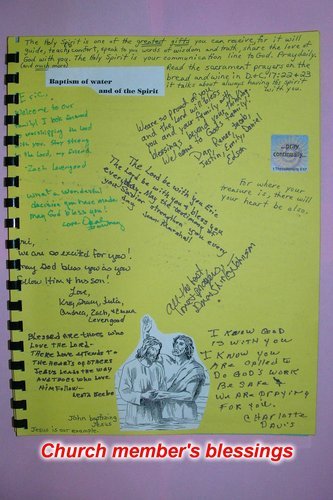 The Holy Spirit is one of the greatest gifts you can receive, for it will
guide, teach, comfort, speak to you words of wisdom and truth, share the love of
God with you. The Holy Spirit is your communication line to God. Pray daily.
(and much more)
Read the sacrament prayers on the
bread and wine in D+C 17:22+23
It talks about always having His spirit
with you.
Baptism of water
and of the Spirit
Eric,
Welcome to our
family! I look forward
to worshipping the lord
with you. Stay strong
the Lord, my friend.
Zach Levengood
We are so proud of you
and the Lord will bless
you and your family with
blessings beyond your
Welcome to God's family!
Love,
Justin, Daniel
...pray
continually...
1 Thessalonians 5:17
For where your
treasure is, there will
your heart be also.
The Lord be with you Eric
The Lord bless you
every day. May the
strengthen you every
day
Marshall
What a wonderful
decision you have made.
May God bless you!
Love,
All the best
we are so excited for you!
may God bless you as you
follow Him & his son!
Love,
Kris, Stacy, Julia,
Andrea, Zach, & Emma
Levengood
Blessed are those who
love the Lord-
There love extends to
the hearts of others
Jesus leads the way
and those who love
Him follow-
Leta Beebe
John baptizing
Jesus
Jesus is our example.
I know God
is with you
I know you
are called to
do God's work
Be safe &
we are praying
for you.
Charlotte
Davis
Church member's blessings